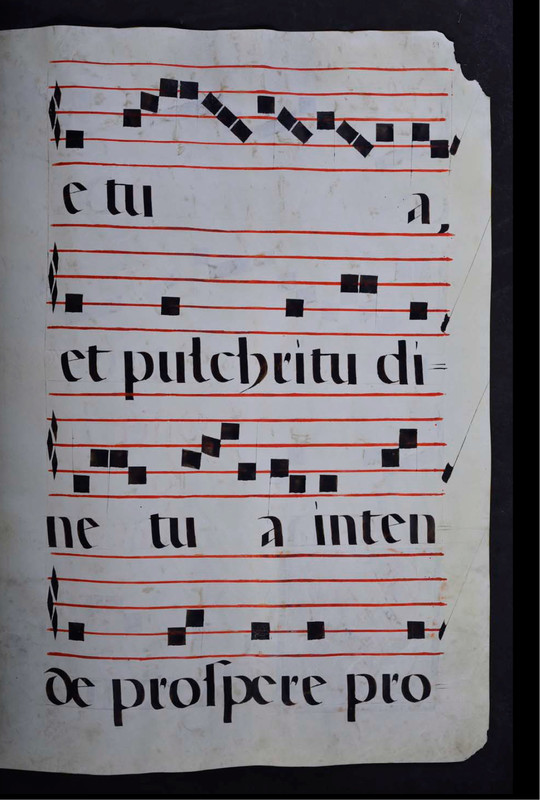 e tu a,
et pulchritu di=
ne tu a inten
de proſpere pro